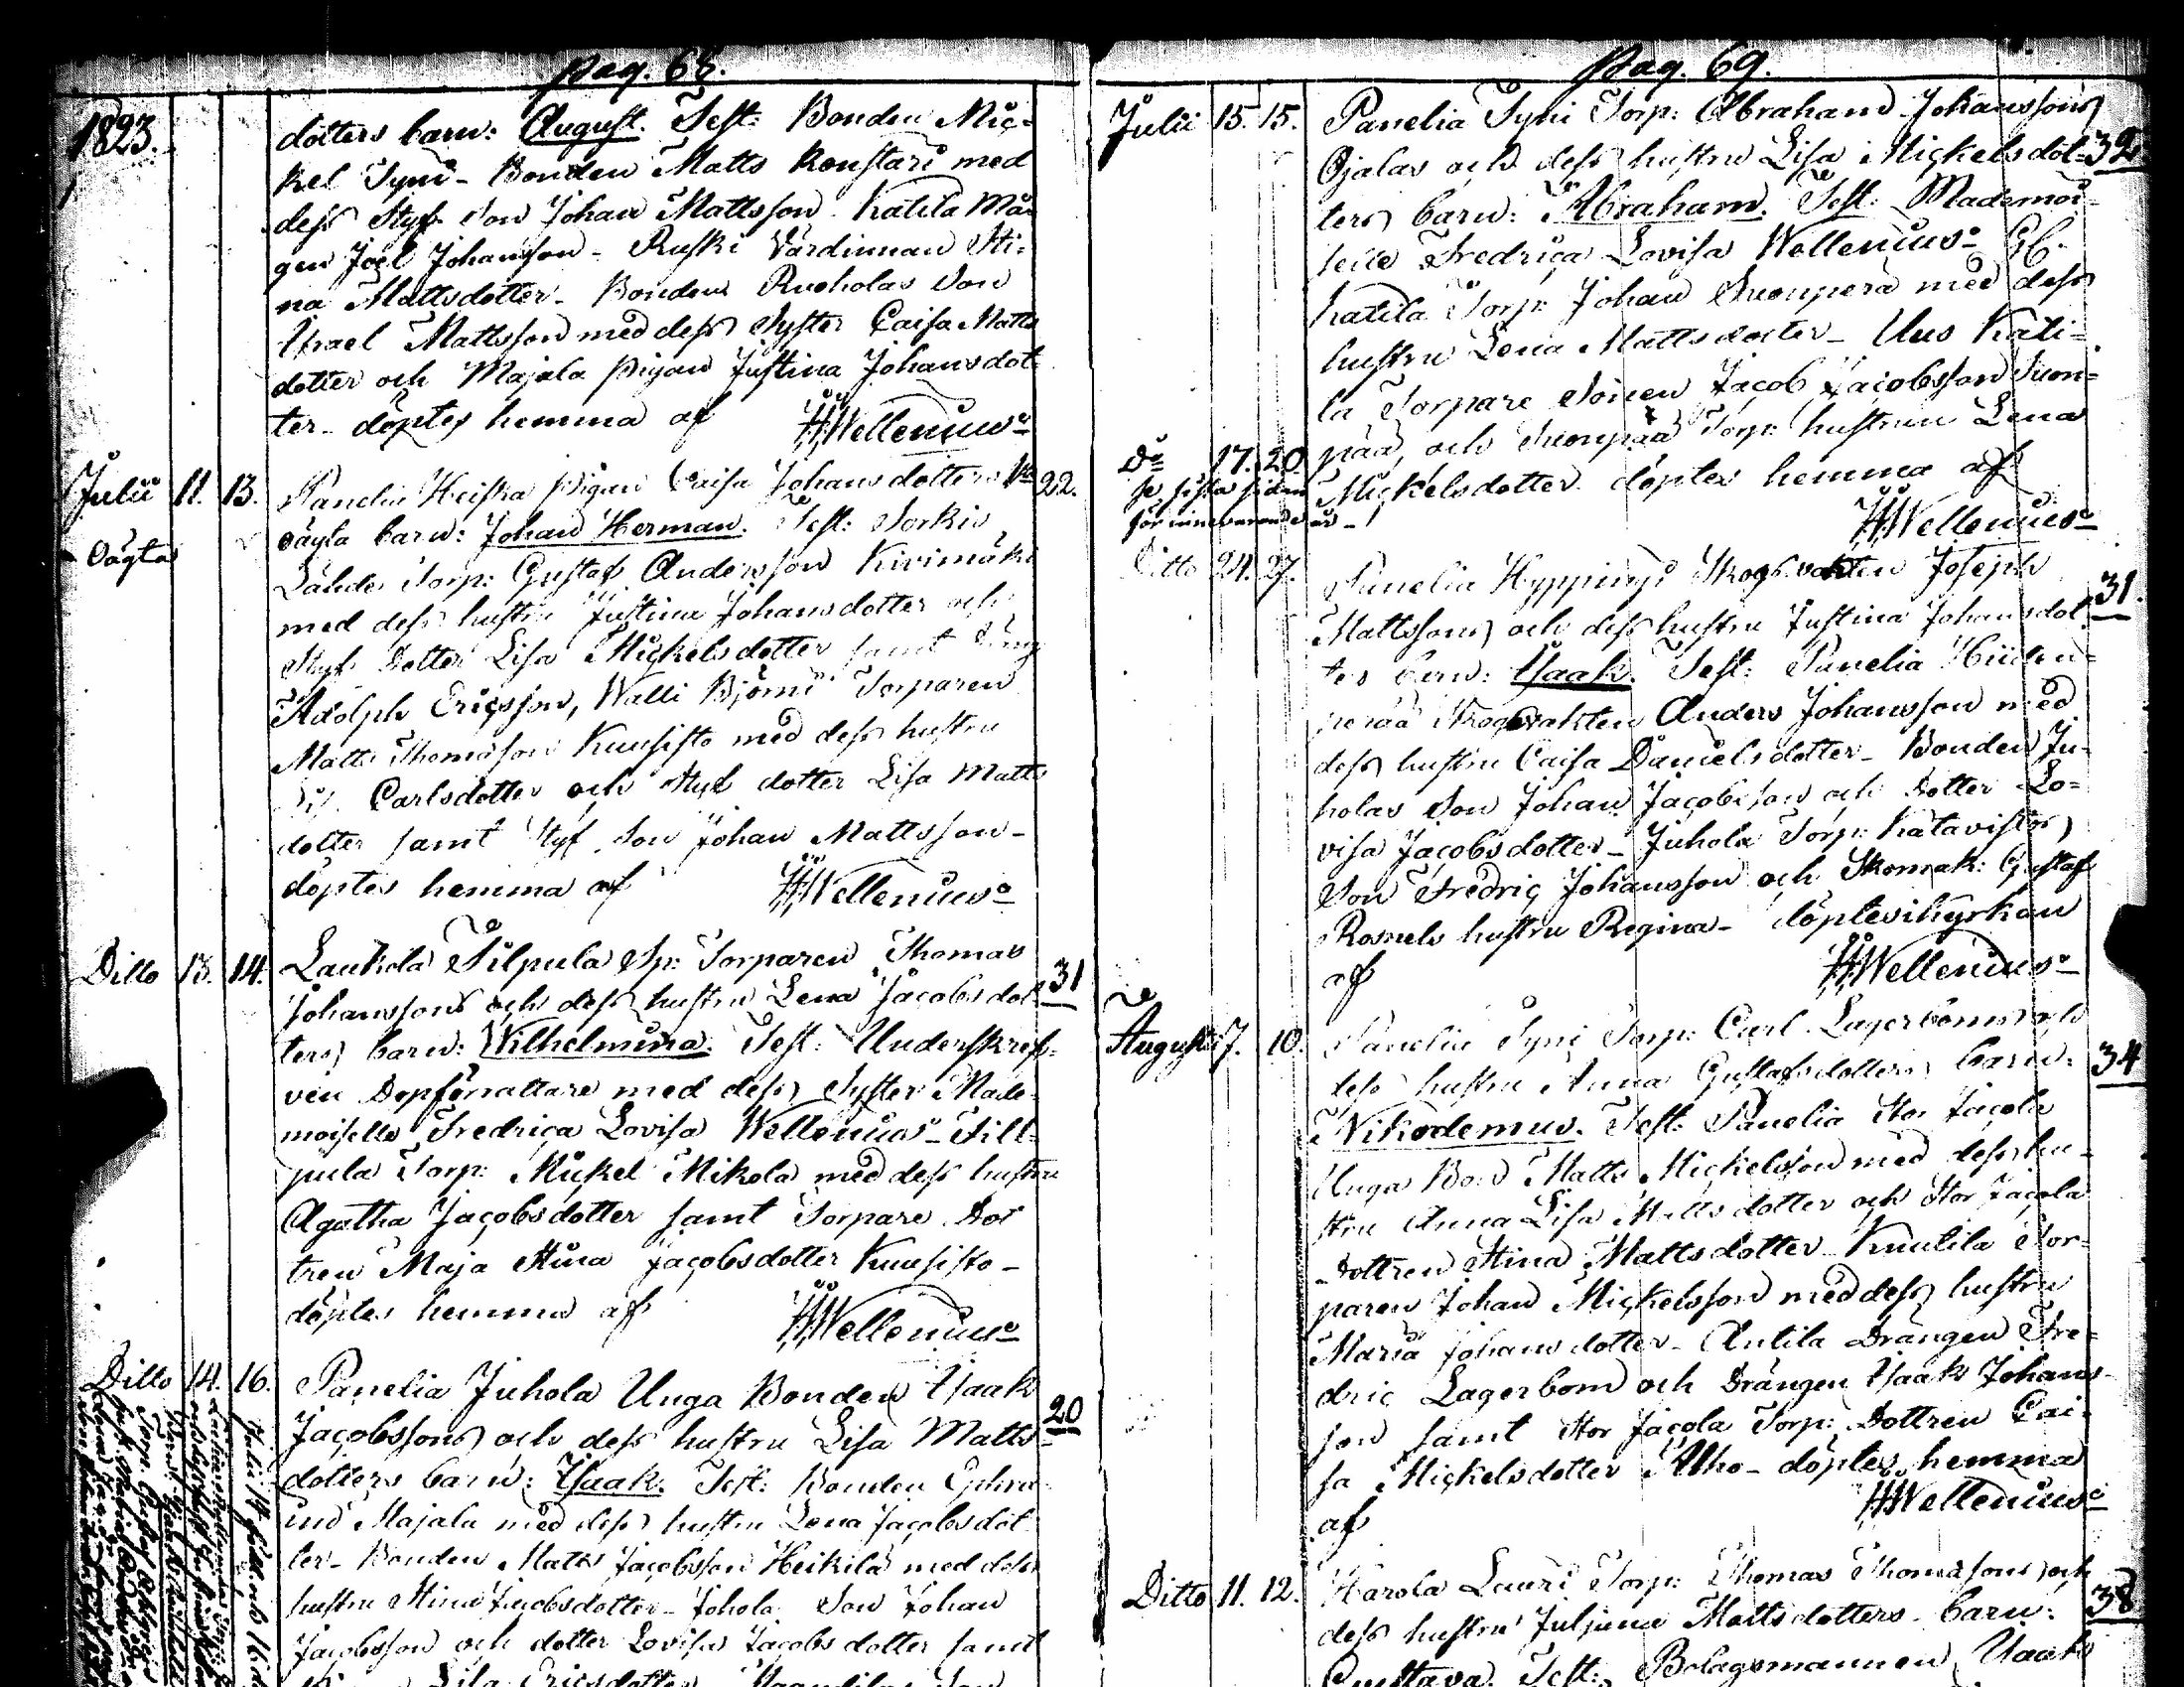 pag. 68.
1823.
dotters barn: August. Test: Bonden Mic-
kel Syni - Bonden Matts Konstari med
dess Styf Son Johan Mattsson. Katila Må-
gen Joel Johansson - Ruski Värdinnan Sti-
na Mattsdotter - Bonden Ruoholas Son
Israel Mattsson med dess Syster Caisa Matts
dotter och Majala Pigan Justina Johansdot-
ter - döptes hemma af HHWellenius
Julii 11. 13. Panelia Heiska Pigan Caisa Johansdotters 22.
Oägta
oägta barn: Johan Herman. Test: Sorkis
Lähde Torp: Gustaf Andersson Kivimäki
med dess hustru Justina Johansdotter och
Styf Dotter Lisa Mickelsdotter samt Dräng
Adolph Ericsson, Walli Björni Torparen
Matts Thomasson Kuusisto med dess hustru
Carlsdotter och Styf dotter Lisa Matts
dotter samt Styf Son Johan Mattsson -
döptes hemma af HHWellenius
Ditto 13. 14. Laukola Pilpula Sp: Torparen Thomas
Johanssons och dess hustru Lena Jacobsdot- 31
ters barn: Wilhelmina. Test: Underskref-
ven Dopförrättare med dess Syster Made-
moiselle Fredrica Lovisa Wellenius - Pill-
pula Torp: Mickel Mikola med dess hustru
Agatha Jacobsdotter samt Torpare Dot
tren Maja Stina Jacobsdotter Kuusisto -
döptes hemma af HHWellenius
Ditto 14. 16. Panelia Juhola Unga Bonden Isaak
Jacobssons och dess hustru Lisa Matts- 20
dotters barn: Isaak. Test: Bonden Ephra-
im Majala med dess hustru Lena Jacobsdot-
ter - Bonden Matts Jacobsson Heikilä med dess
hustru Stina Jacobsdotter - Johola Son Johan
Jacobsson och dotter Lovisa Jacobsdotter samt
Lisa Ericsdotter
pag. 69.
Julii 15. 15. Panelia Syni Torp: Abraham Johanssons
Ojalas och dess hustru Lisa Mickelsdot- 32
ters barn: Abraham. Test: Mademoi-
selle Fredrica Lovisa Wellenius
Katila Torp: Johan Suonperä med dess
hustru Lena Mattsdotter - Uus Kati-
la Torpare Sonen Jacob Jacobsson Suon-
pää, och Suonpää Torp: hustrun Lena
Do 17. 20.
se sista sidan
för innevarande år -
Mickelsdotter. döptes hemma af
HHWellenius
Ditto 24. 27. Panelia Hyppingi Skogsvakten Joseph
Mattssons och dess hustru Justina Johansdot- 31.
ters barn: Isaak. Test: Panelia Hiiden-
perää Skogsvakten Anders Johansson med
dess hustru Caisa Danielsdotter - Bonden Ju-
holas Son Johan Jacobsson och Dotter Lo-
visa Jacobsdotter - Juhola Torp: Katavistos
Son Fredric Johansson och Skomak: Gustaf
Rosnels hustru Regina - döptes i kyrkan
af HHWellenius
Augusti 7. 10. Panelia Syni Torp: Carl Lagerboms och
dess hustru Anna Gustafsdotters barn: 34
Nikodemus. Test: Panelia Stor Jacola
Unga Bond Matts Mickelsson med dess hu-
stru Anna Lisa Mattsdotter och Stor Jacola
Dottren Stina Mattsdotter - Knutila Tor-
paren Johan Mickelsson med dess hustru
Maria Johansdotter - Antila Drängen Fre-
dric Lagerbom och Drängen Isaak Johans-
son samt Stor Jacola Torp: Dottren Cai-
sa Mickelsdotter Alho - döptes hemma
af HHWellenius
Ditto 11. 12. Harola Lauri Torp: Thomas Thomassons och
dess hustru Juljana Mattsdotters barn: 38
Gustava. Test: Bolagsmannen Isaak